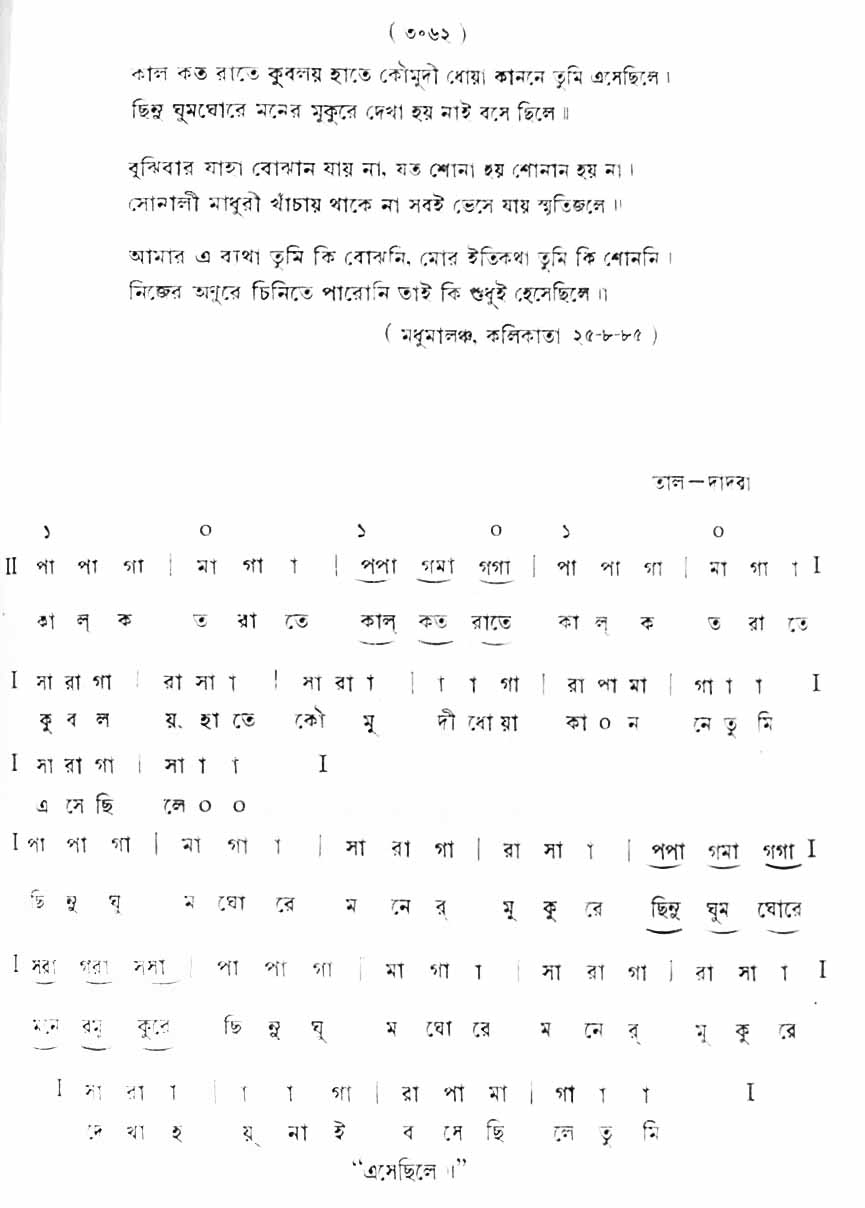 ( ৩০৬২ )
কাল কত রাতে কুবলয় হাতে কৌমুদী ধোয়া কাননে তুমি এসেছিলে ।
ছিনু ঘুমঘোরে মনের মুকুরে দেখা হয় নাই বসে ছিলে ॥
বুঝিবার যাহা বোঝান যায় না, যত শোনা হয় শোনান হয় না ।
সোনালী মাধুরী খাঁচায় থাকে না সবই ভেসে যায় স্মৃতিজলে ॥
আমার এ ব্যথা তুমি কি বোঝনি, মোর ইতিকথা তুমি কি শোননি ।
নিজের অণুরে চিনিতে পারোনি তাই কি শুধুই হেসেছিলে ॥
( মধুমালঞ্চ, কলিকাতা ২৫-৮-৮৫ )
তাল—দাদরা
১ ০ ১ ০ ১ ০
II পা পা গা | মা গা া | পপা গমা গগা | পা পা গা | মা গা া I
কা ল্ ক ত রা তে কাল্ কত রাতে কা ল্ ক ত রা তে
I সা রা গা | রা সা া | সা রা া | া া গা | রা পা মা | গা া া I
কু ব ল য়্ হা তে কৌ মু দী ধো য়া কা ০ ন নে তু মি
I সা রা গা | সা া া I
এ সে ছি লে ০ ০
I পা পা গা | মা গা া | সা রা গা | রা সা া | পপা গমা গগা I
ছি নু ঘু ম ঘো রে ম নে র্ মু কু রে ছিনু ঘুম ঘোরে
I সরা গরা সসা | পা পা গা | মা গা া | সা রা গা | রা সা া I
মনে রমু কুরে ছি নু ঘু ম ঘো রে ম নে র্ মু কু রে
I সা রা া | া া গা | রা পা মা | গা া া I
দে খা হ য়্ না ই ব সে ছি লে তু মি
“এসেছিলে ॥”